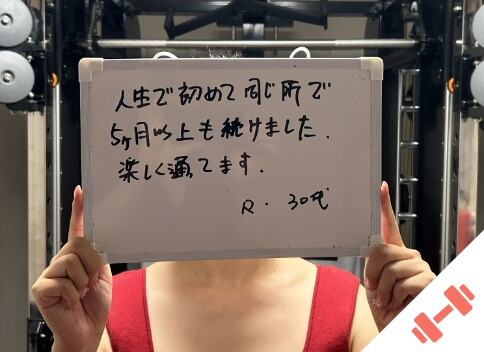 人生で初めて同じ所で
5ヶ月以上も続けました.
楽しく通てます.
R. 30代